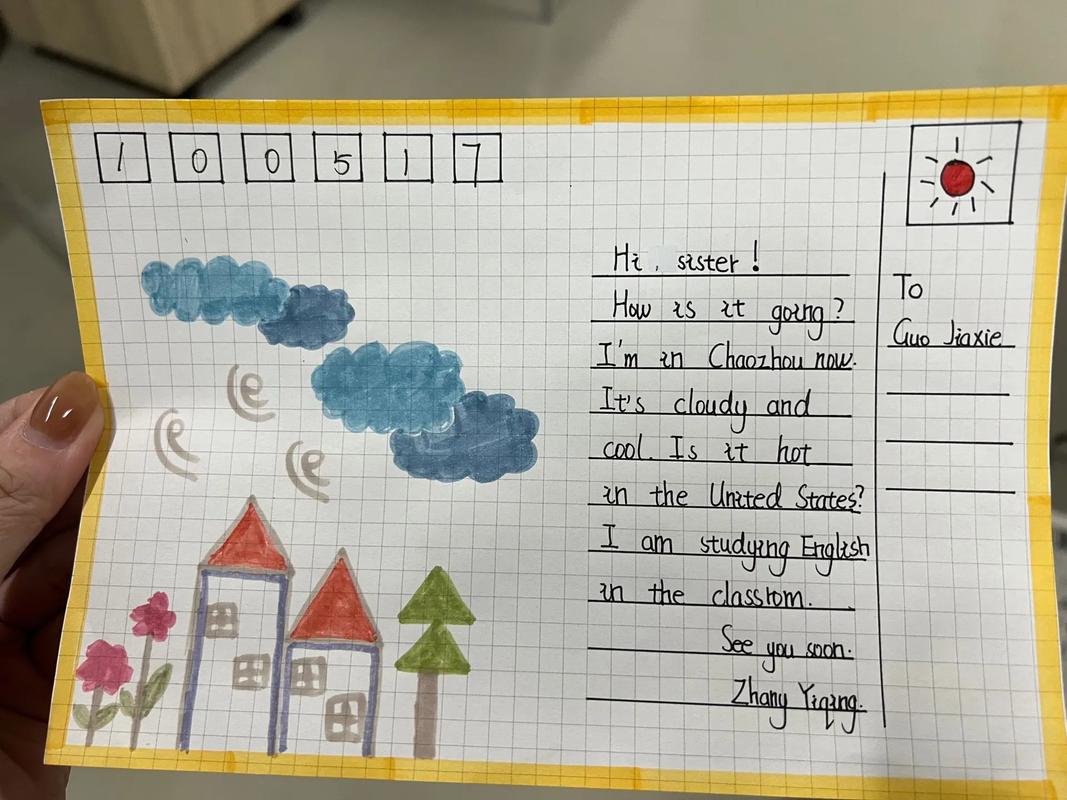 1 0 0 5 1 7
Hi, sister!
How is it going?
I'm in Chaozhou now.
It's cloudy and
cool. Is it hot
in the United States?
I am studying English
in the classrom.
See you soon.
Zhany Yiqing.
To
Guo Jiaxie